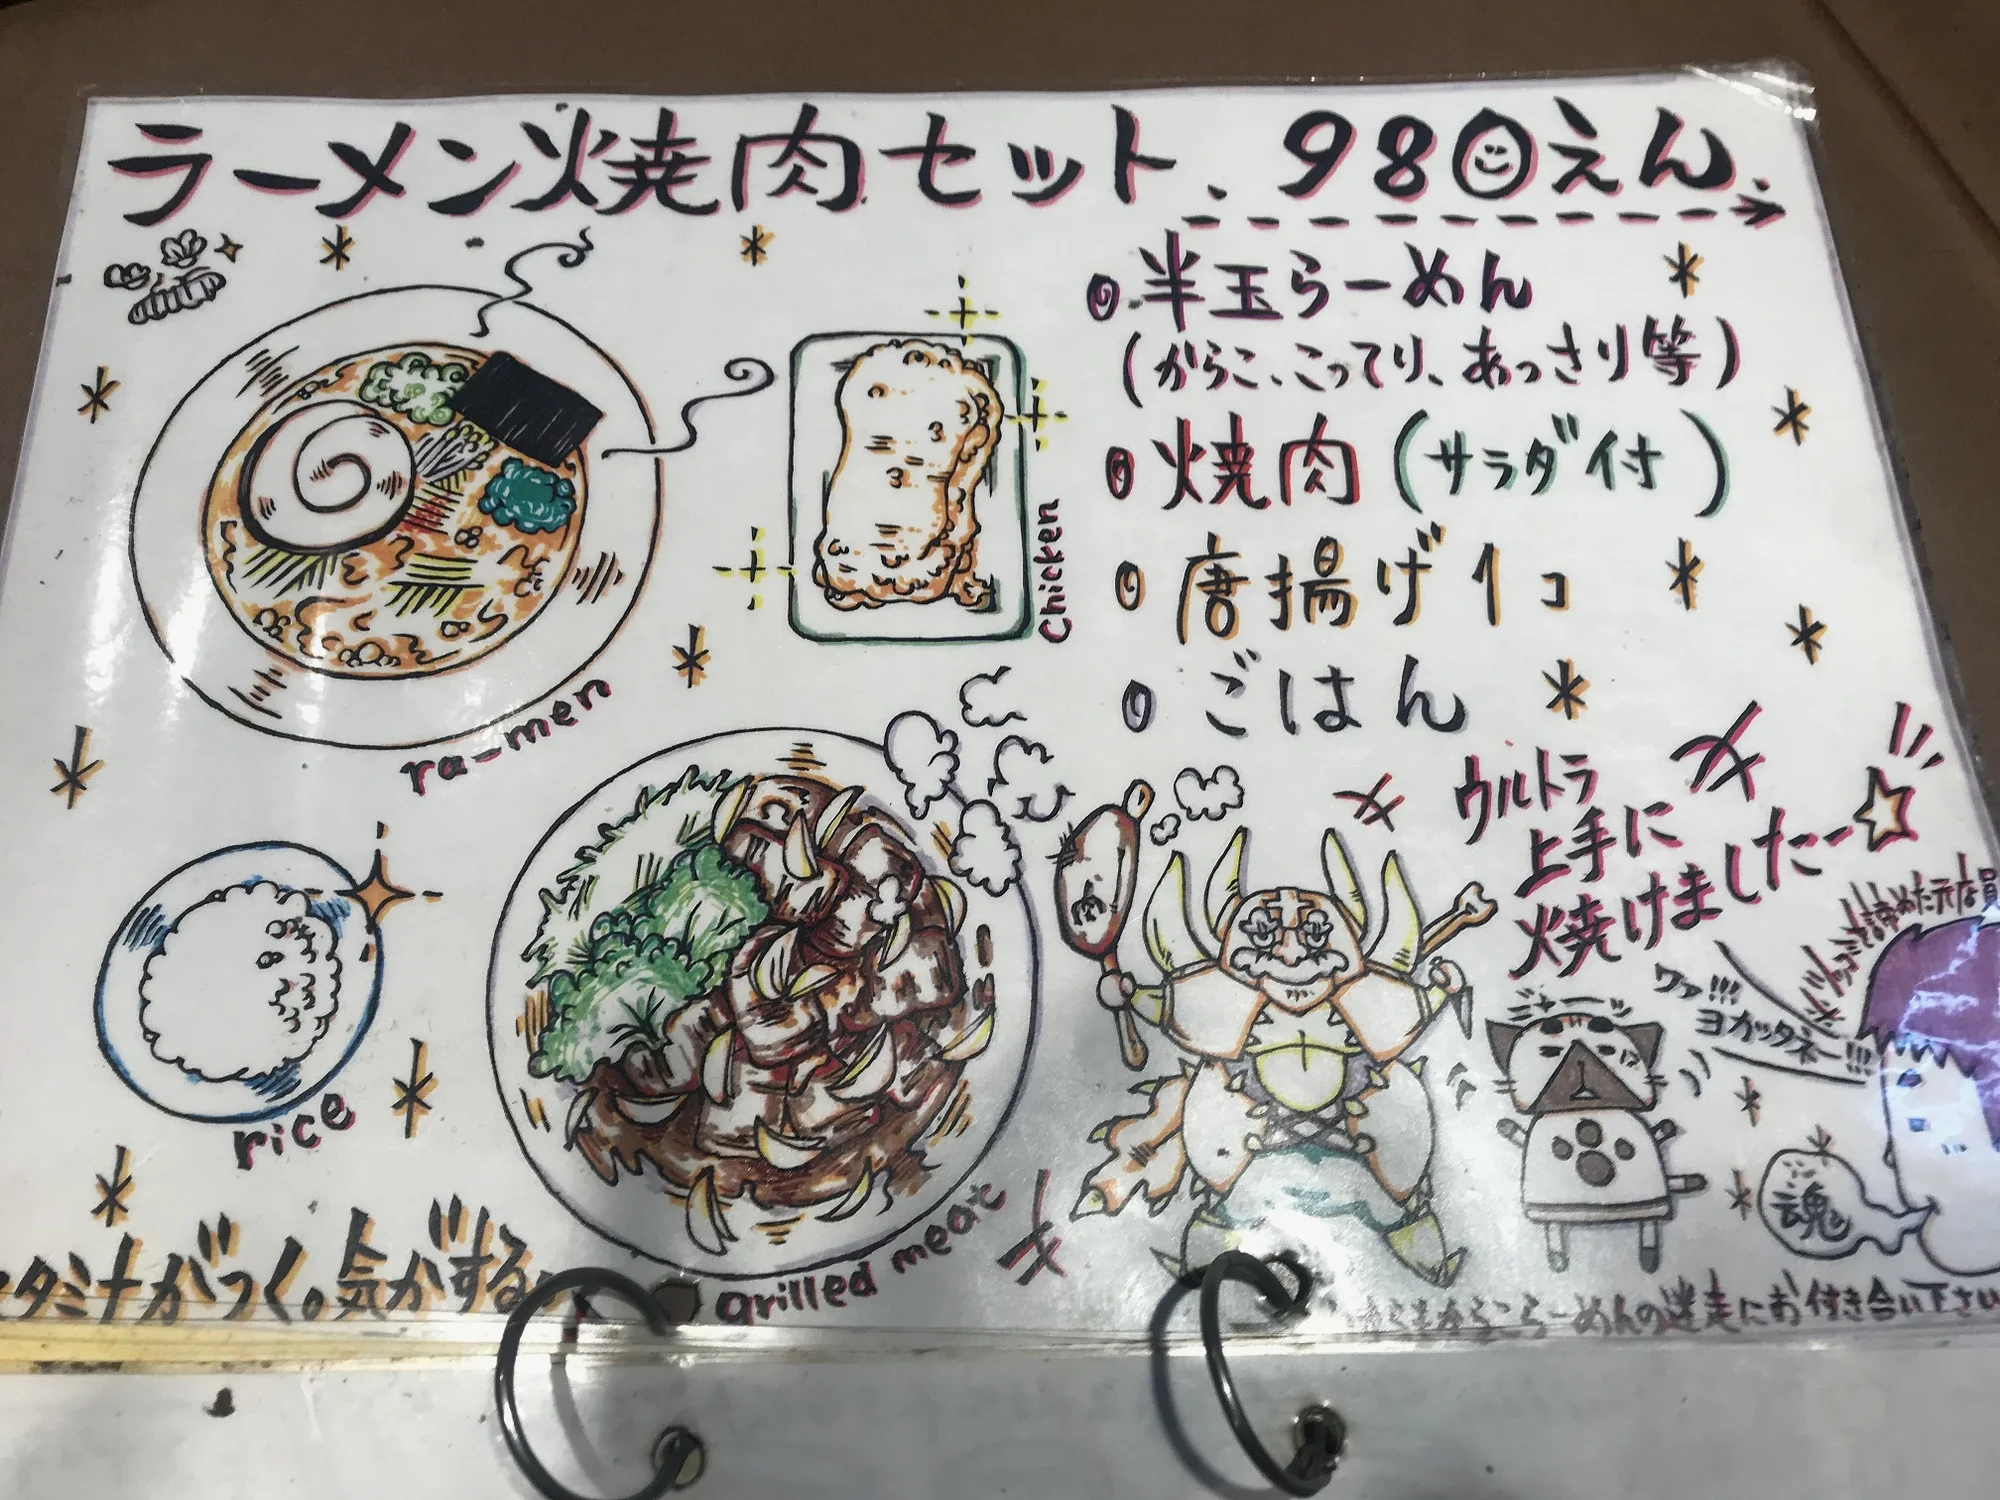 ラーメン焼肉セット、980えん
半玉らーめん
(からこ、こってり、あっさり等)
焼肉(サラダ付)
唐揚げ1コ
ごはん
ra-men
chicken
rice
grilled meat
肉
ウルトラ
上手に
焼けましたー☆
諦めた元店員
ワァ!!!
ヨカッタネー!!!
魂
タミナがつく。気がする
らーめんの迷走にお付き合い下さい